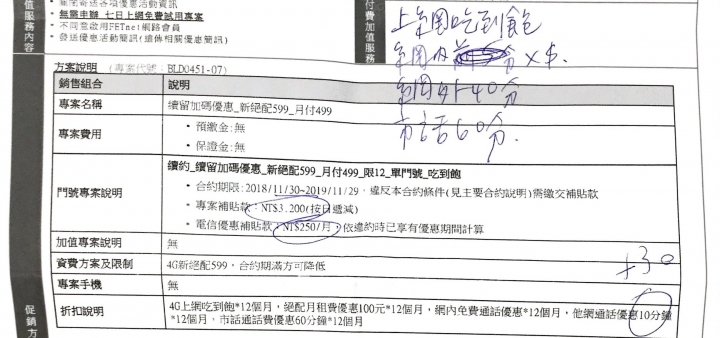 值服務內容
無需申辦 七日上網免費試用專案
• 不同意啟用FETnet網路會員
• 發送優惠活動簡訊(遠傳相關優惠簡訊)
付費加值服務
上網吃到飽
網內
分 x $.
網外40分
市話60分.
方案說明 (專案代號: BLD0451-07)
銷售組合 說明
專案名稱 續留加碼優惠_新絕配599_月付499
專案費用
• 預繳金:無
• 保證金:無
門號專案說明
續約_續留加碼優惠_新絕配599_月付499_限12_單門號_吃到飽
• 合約期限:2018/11/30~2019/11/29，違反本合約條件(見主要合約說明)需繳交補貼款
• 專案補貼款：NT$3,200(按日遞減)
• 電信優惠補貼款：NT$250/月，依違約時已享有優惠期間計算
加值專案說明 無
資費方案及限制 4G新絕配599，合約期滿方可降低
+30
專案手機 無
折扣說明
4G上網吃到飽*12個月，絕配月租費優惠100元*12個月，網內免費通話優惠*12個月，他網通話優惠10分鐘
*12個月，市話通話費優惠60分鐘*12個月
促銷方